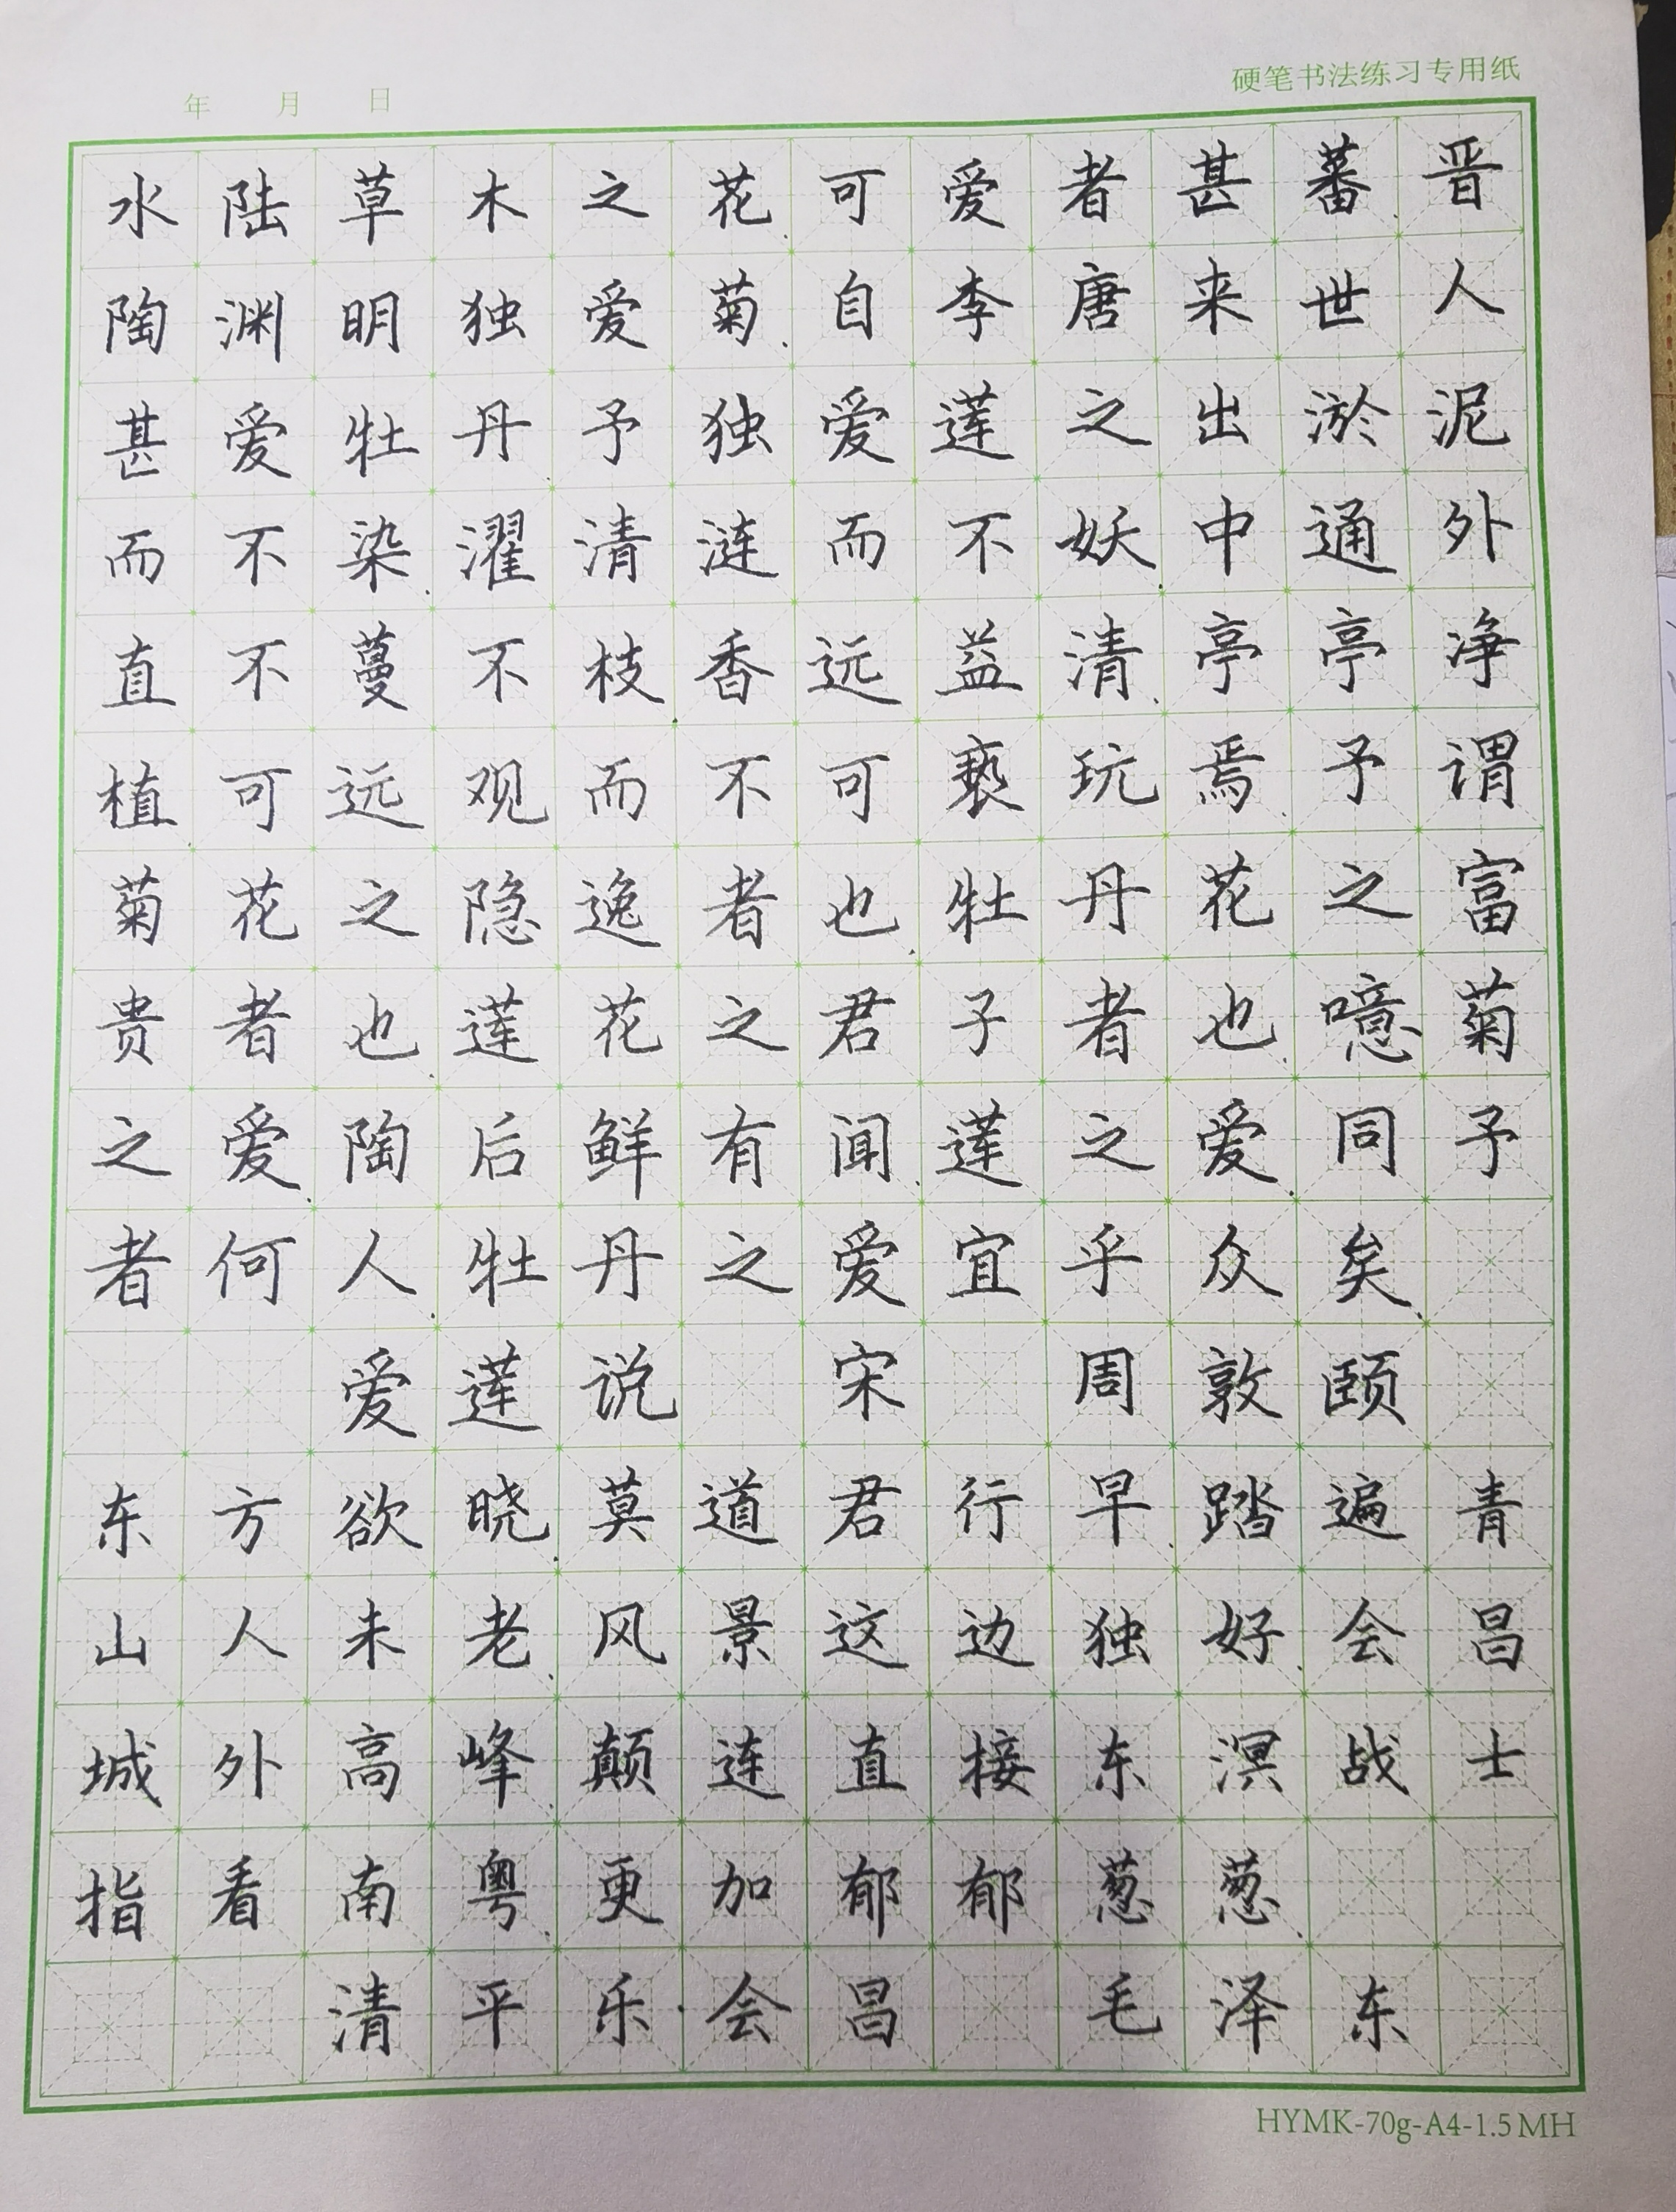 年 月 日
硬笔书法练习专用纸
水陆草木之花.可爱者甚蕃.晋
人陶渊明独爱菊.自李唐来世人
甚爱牡丹.予独爱莲之出淤泥
而不染.濯清涟而不妖.中通外
直不蔓不枝.香远益清.亭亭净
植.可远观而不可亵玩焉.予谓
菊花之隐逸者也.牡丹花之富
贵者也.莲花之君子者也.噫菊
之爱.陶后鲜有闻.莲之爱.同予
者何人.牡丹之爱宜乎众矣.
爱莲说 宋 周敦颐
东方欲晓.莫道君行早.踏遍青
山人未老.风景这边独好.会昌
城外高峰.颠连直接东溟.战士
指看南粤.更加郁郁葱葱.
清平乐·会昌 毛泽东
HYMK-70g-A4-1.5MH